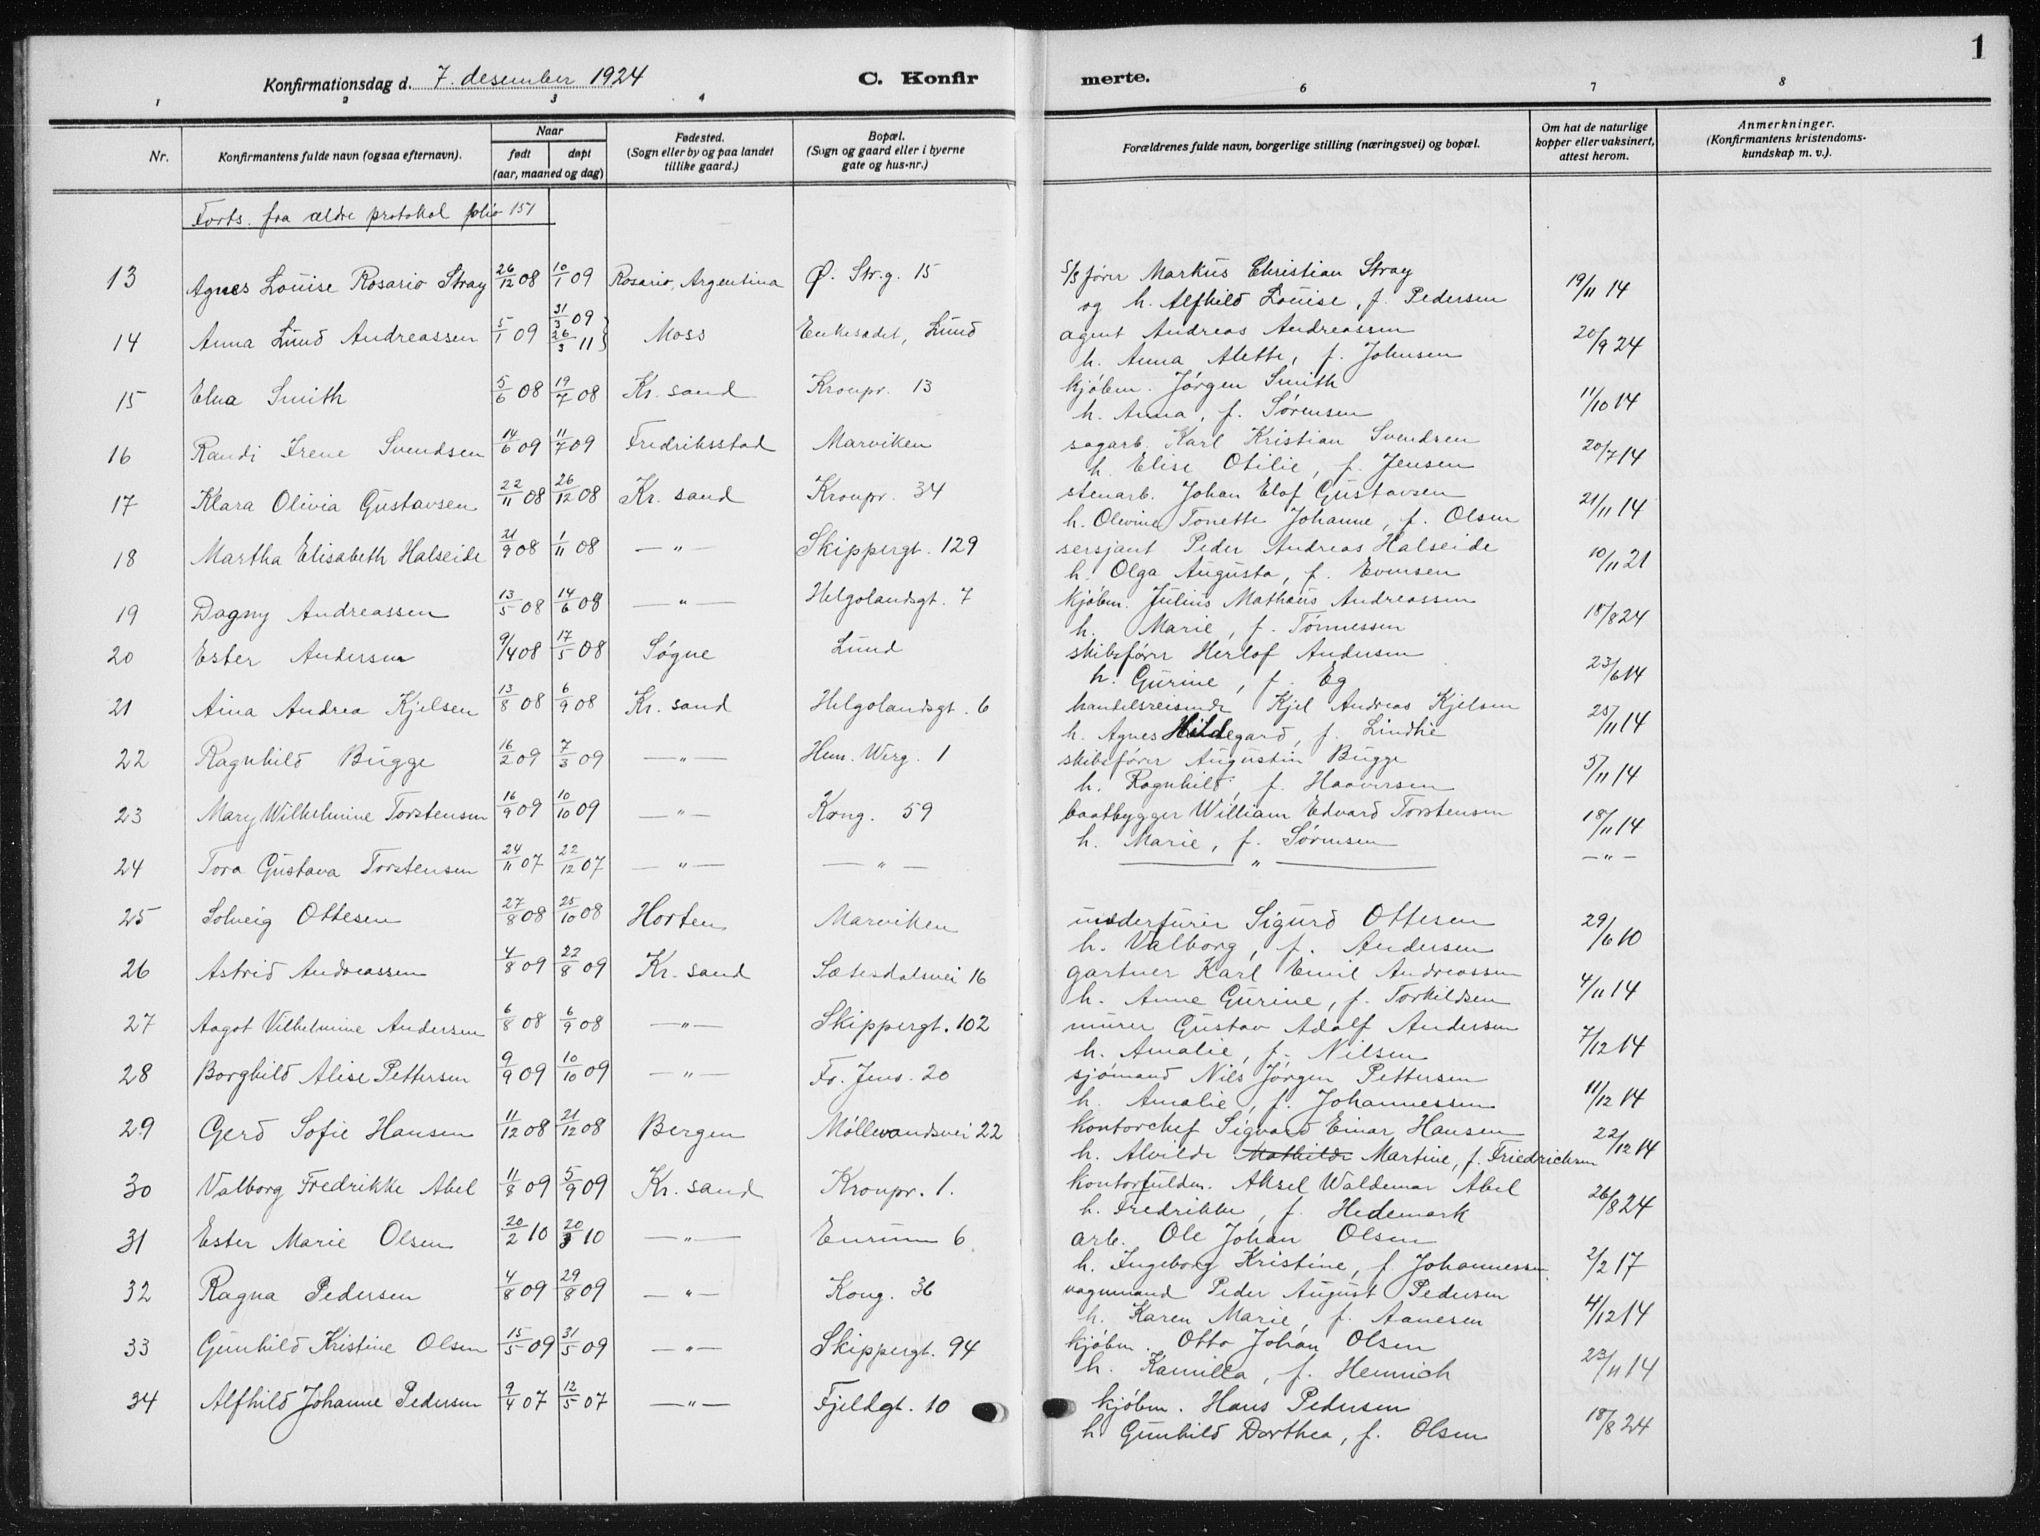 1
Konfirmationsdag d. 7. desember 1924 C. Konfirmerte.
1 2 3 4 6 7 8
Nr. Konfirmantens fulde navn (ogsaa efternavn). Naar født døpt (aar, maaned og dag) Fødested. (Sogn eller by og paa landet tillike gaard.) Bopæl. (Sogn og gaard eller i byerne gate og hus-nr.) Forældrenes fulde navn, borgerlige stilling (næringsvei) og bopæl. Om hat de naturlige kopper eller vaksinert, attest herom. Anmerkninger. (Konfirmantens kristendoms-kundskap m. v.).
Forts. fra ældre protokol folio 151
13 Agnes Louise Rosario Stray 26/12 08 10/1 09 Rosario, Argentina Ø. Str.g. 15 s/s fører Markus Christian Stray 19/11 14
og h. Alfhild Louise, f. Pedersen
14 Anna Lund Andreassen 5/1 09 31/3 09 26/3 11 } Moss Enkesædet, Lund agent Andreas Andreassen 20/9 24
h. Anna Alette, f. Johnsen
15 Elna Smith 5/6 08 19/7 08 Kr. sand Kronpr. 13 kjøbm. Jørgen Smith 11/10 14
h. Anna, f. Sørensen
16 Randi Irene Svendsen 14/6 09 11/7 09 Fredriksstad Marviken sagarb. Karl Kristian Svendsen 20/7 14
h. Elise Otilie, f. Jensen
17 Klara Olivia Gustavsen 22/11 08 26/12 08 Kr. sand Kronpr. 34 stenarb. Johan Elof Gustavsen 21/11 14
h. Olevine Tonette Johanne, f. Olsen
18 Martha Elisabeth Halseide 21/9 08 1/11 08 —〃— Skippergt. 129 sersjant Peder Andreas Halseide 10/11 21
h. Olga Augusta, f. Evensen
19 Dagny Andreassen 13/5 08 14/6 08 —〃— Helgolandsgt. 7 kjøbm. Julius Mathæus Andreassen 18/8 24
h. Marie, f. Tønnessen
20 Ester Andersen 9/4 08 17/5 08 Søgne Lund skibsfører Herlof Andersen 23/6 14
h. Gurine, f. Eg
21 Aina Andrea Kjelsen 13/8 08 6/9 08 Kr. sand Helgolandsgt. 6 handelsreisende Kjel Andreas Kjelsen 25/11 14
h. Agnes Hildegard, f. Lindtie
22 Ragnhild Bugge 16/2 09 7/3 09 —〃— Hen. Werg. 1 skibsfører Augustin Bugge 5/11 14
h. Ragnhild, f. Haaversen
23 Mary Wilhelmine Torstensen 16/9 09 10/10 09 —〃— Kong. 59 baatbygger William Edvard Torstensen 18/11 14
h. Marie, f. Sørensen
24 Tora Gustava Torstensen 24/11 07 22/12 07 —〃— —〃— —〃— —〃—
25 Solveig Ottesen 27/8 08 25/10 08 Horten Marviken underfurer Sigurd Ottesen 29/6 10
h. Valborg, f. Andersen
26 Astrid Andreassen 4/8 09 22/8 09 Kr. sand Sætesdalsvei 16 gartner Karl Emil Andreassen 4/11 14
h. Anne Gurine, f. Torkildsen
27 Aagot Vilhelmine Andersen 6/8 08 6/9 08 —〃— Skippergt. 102 murer Gustav Adolf Andersen 7/12 14
h. Amalie, f. Nilsen
28 Borghild Alise Pettersen 9/9 09 10/10 09 —〃— Fr. Jens. 20 sjømand Nils Jørgen Pettersen 11/12 14
h. Amalie, f. Johannessen
29 Gerd Sofie Hansen 11/12 08 21/12 08 Bergen Møllevandsvei 22 kontorchef Sigvard Einar Hansen 22/12 14
h. Alvilde Mathilde Martine, f. Friedrichsen
30 Valborg Fredrikke Abel 11/8 09 5/9 09 Kr. sand Kronpr. 1. kontorfuldm. Aksel Waldemar Abel 26/8 24
h. Fredrikke, f. Hedemark
31 Ester Marie Olsen 20/2 10 20/3 10 —〃— Enrum 6 arb. Ole Johan Olsen 2/2 17
h. Ingeborg Kristine, f. Johannessen
32 Ragna Pedersen 4/8 09 29/8 09 —〃— Kong. 36 vognmand Peder August Pedersen 4/12 14
h. Karen Marie, f. Aanesen
33 Gunhild Kristine Olsen 15/5 09 31/5 09 —〃— Skippergt. 94 kjøbm. Otto Johan Olsen 23/11 14
h. Kamilla, f. Hennich
34 Alfhild Johanne Pedersen 9/4 07 12/5 07 —〃— Fjeldgt. 10 kjøbm. Hans Pedersen 18/8 24
h. Gunhild Dorthea, f. Olsen